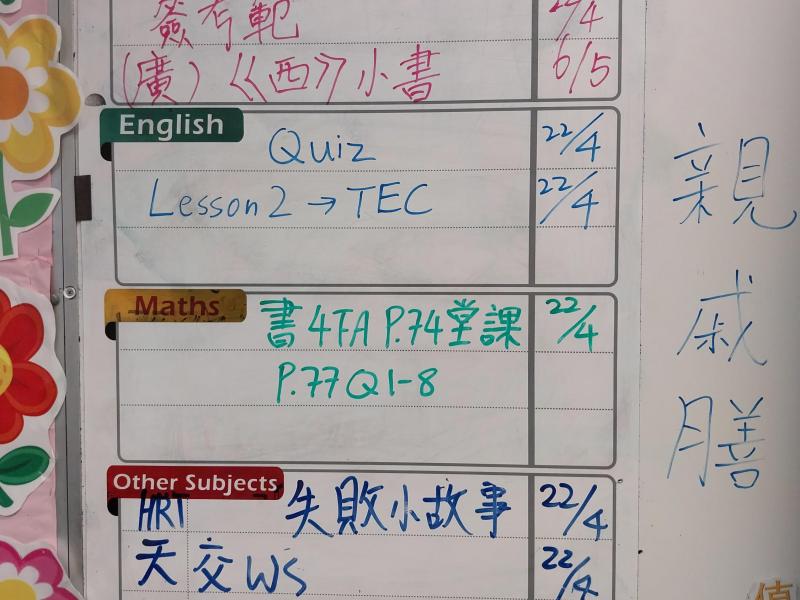 簽考範 22/4
(廣)《西》小書 6/5
English
Quiz 22/4
Lesson 2 → TEC 22/4
Maths
書4下A P.74堂課 22/4
P.77 Q1-8
Other Subjects
HRT 失敗小故事 22/4
天 交WS 22/4
親
戚
膳
值